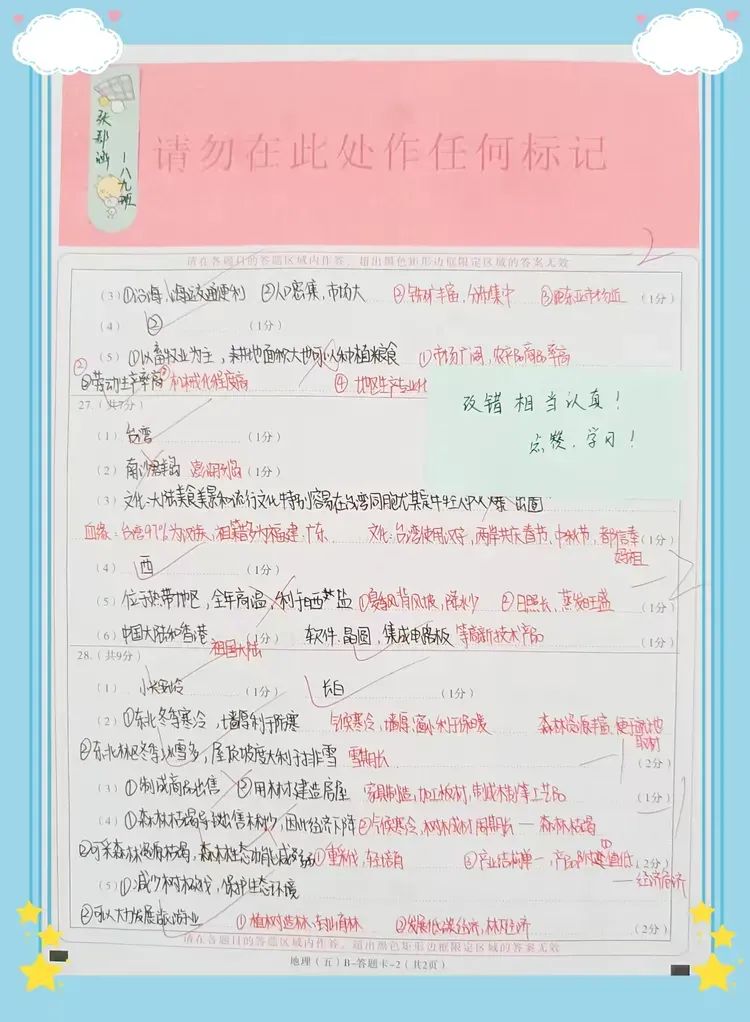 请勿在此处作任何标记
一八九班
2
请在各题目的答题区域内作答,超出黑色矩形边框限定区域的答案无效
(3)①沿海,海运交通便利 ②人口密集,市场大 ②铁矿丰富,分布集中 ③距东亚市场近 (1分)
(4) ② (1分)
(5)①以畜牧业为主,耕地面积大也可以种植粮食 ①市场广阔,农产品商品率高
②劳动生产率高 机械化程度高 ④地区生产专业化
改错相当认真!
点赞、学习!
27.(共7分)
(1)台湾 (1分)
(2)南沙群岛 澎湖列岛 (1分)
(3)文化:大陆美食美景和流行文化特别容易在台湾同胞尤其是年轻人中
血缘:台湾97%为汉族,祖籍多为福建、广东 文化:台湾使用汉字,两岸共庆春节、中秋节,都信奉妈祖 (1分)
(4) 西 (1分)
2
(5)位于热带地区,全年高温,利于晒盐 ①夏季风背风坡,降水少 ②日照长、蒸发旺盛 (1分)
(6)中国大陆和香港 (1分) 软件、晶圆,集成电路板 等高新技术产品 (1分)
祖国大陆
28.(共9分)
(1) 小兴安岭 (1分) 长白 (1分)
(2)①东北冬季寒冷,墙厚利于防寒 气候寒冷,墙厚,窗小利于保暖 森林资源丰富,便于就地取材
②东北林区冬季冰雪多,屋顶坡度大利于排雪 雪期长 (2分)
(3)①制成商品出售 ②用木材建造房屋 家具制造,加工板材,制成木制等工艺品 (1分)
(4)①森林枯竭导致出售木材少,因此经济下降 ②气候寒冷,树木成材周期长—森林枯竭
②可采森林资源枯竭,森林生态功能减弱 ①重采伐,轻培育 ③产业结构单一,产品附加值低 (2分)
—经济危机
(5)①减少树木砍伐,保护生态环境
②可以大力发展旅游业 ①植树造林,合理育林 ②发展低碳经济,林下经济 (2分)
请在各题目的答题区域内作答,超出黑色矩形边框限定区域的答案无效
地理(五)B-答题卡-2(共2页)